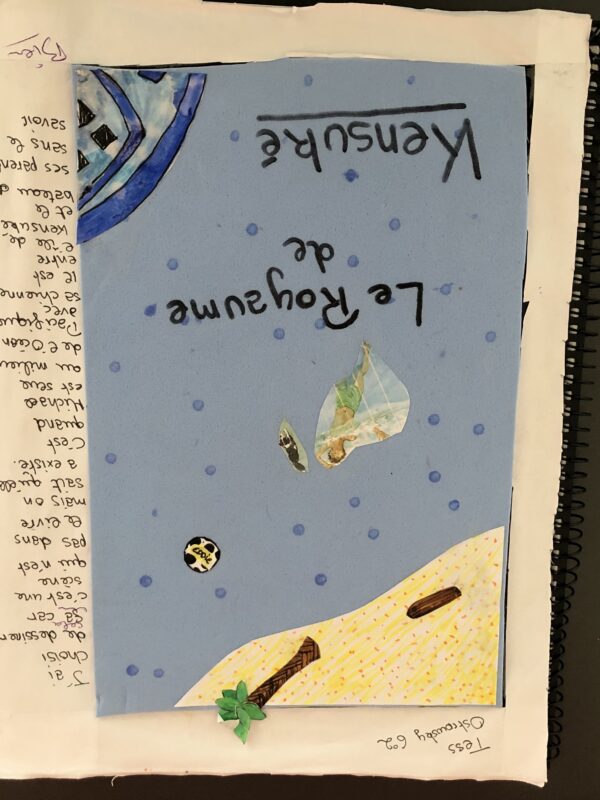 Tess
6°2
Le Royaume
de
Kensuké
J'ai
choisi
de dessiner
cela
ça car
c'est une
scène
qui n'est
pas dans
le livre
mais on
sait qu'elle
a existé.
C'est
quand
Michael
est seul
au milieu
de l'Océan
Pacifique
avec
sa chienne
Il est
entre
l'île de
Kensuké
et le
bateau d
ses paren
sans le
savoir
Bien